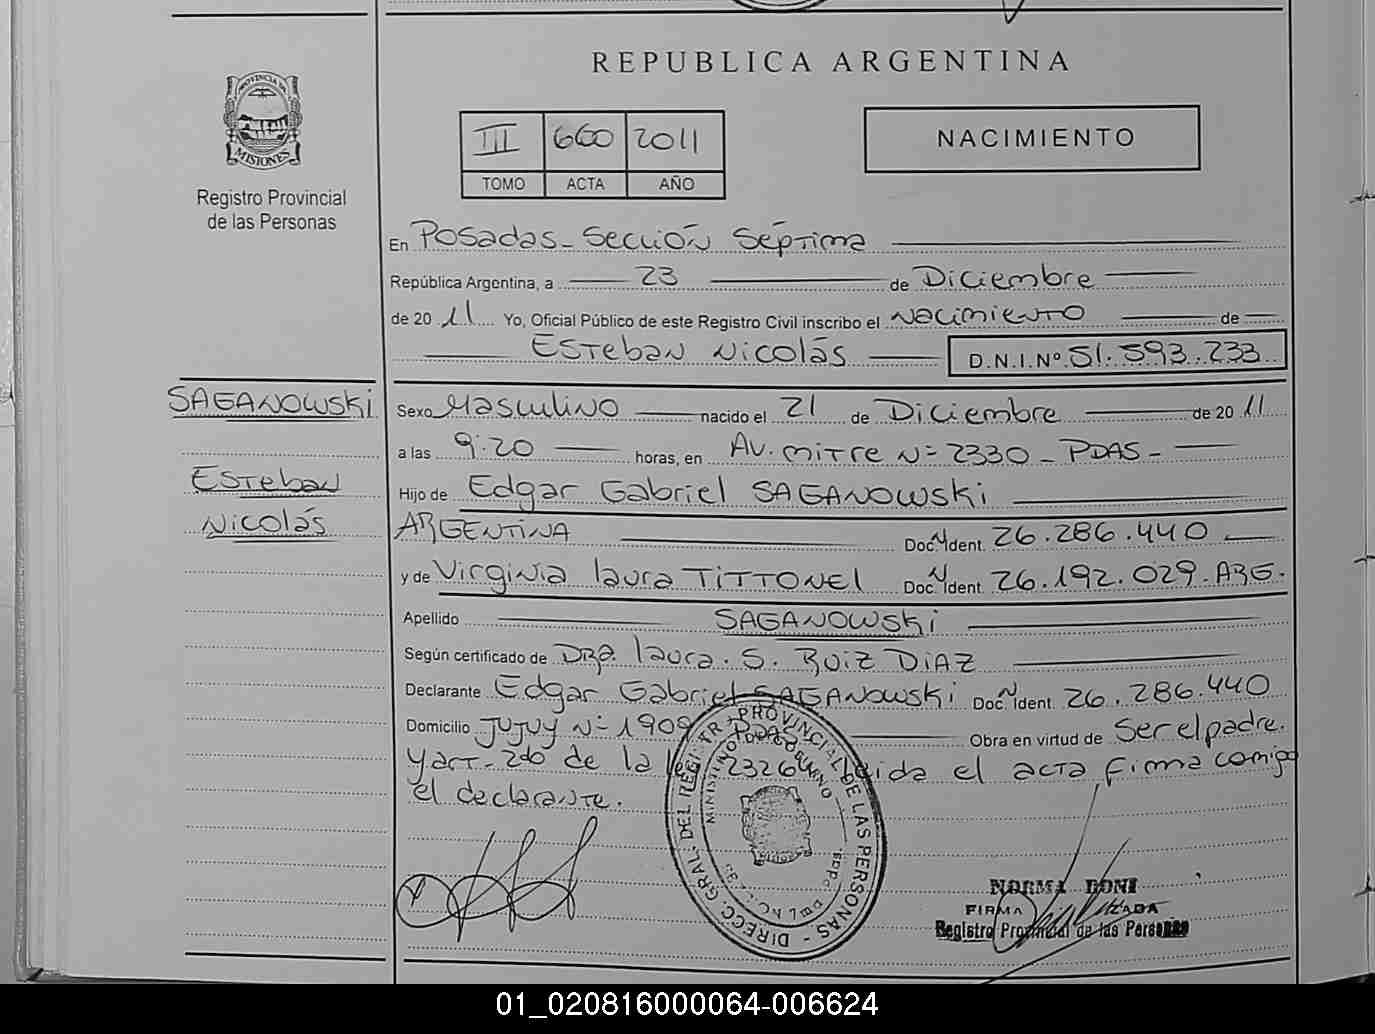 REPUBLICA ARGENTINA
PROVINCIA DE
MISIONES
Registro Provincial
de las Personas
III 660 2011
TOMO ACTA AÑO
NACIMIENTO
En Posadas - Sección Séptima
República Argentina, a 23 de Diciembre
de 20 11 Yo, Oficial Público de este Registro Civil inscribo el Nacimiento de
Esteban Nicolás D.N.I. Nº 51.593.233
SAGANOWSKI
Esteban
Nicolás
Sexo Masculino nacido el 21 de Diciembre de 20 11
a las 9:20 horas, en Av. Mitre Nº 2330 - PDAS -
Hijo de Edgar Gabriel SAGANOWSKI
ARGENTINA Doc. Ident. 26.286.440
y de Virginia Laura TITTONEL Doc. Ident. 26.192.029. ARG.
Apellido SAGANOWSKI
Según certificado de DRA. Laura. S. RUIZ DIAZ
Declarante Edgar Gabriel SAGANOWSKI Doc. Ident. 26.286.440
Domicilio JUJUY Nº 1909 PDAS Obra en virtud de Ser el padre.
y art - 2do de la 23264 el acta firma comigo
el declarante.
DIRECC. GRAL. DEL REG. PROVINCIAL DE LAS PERSONAS
NORMA BONI
FIRMA
Registro Provincial de las Personas
01_020816000064-006624